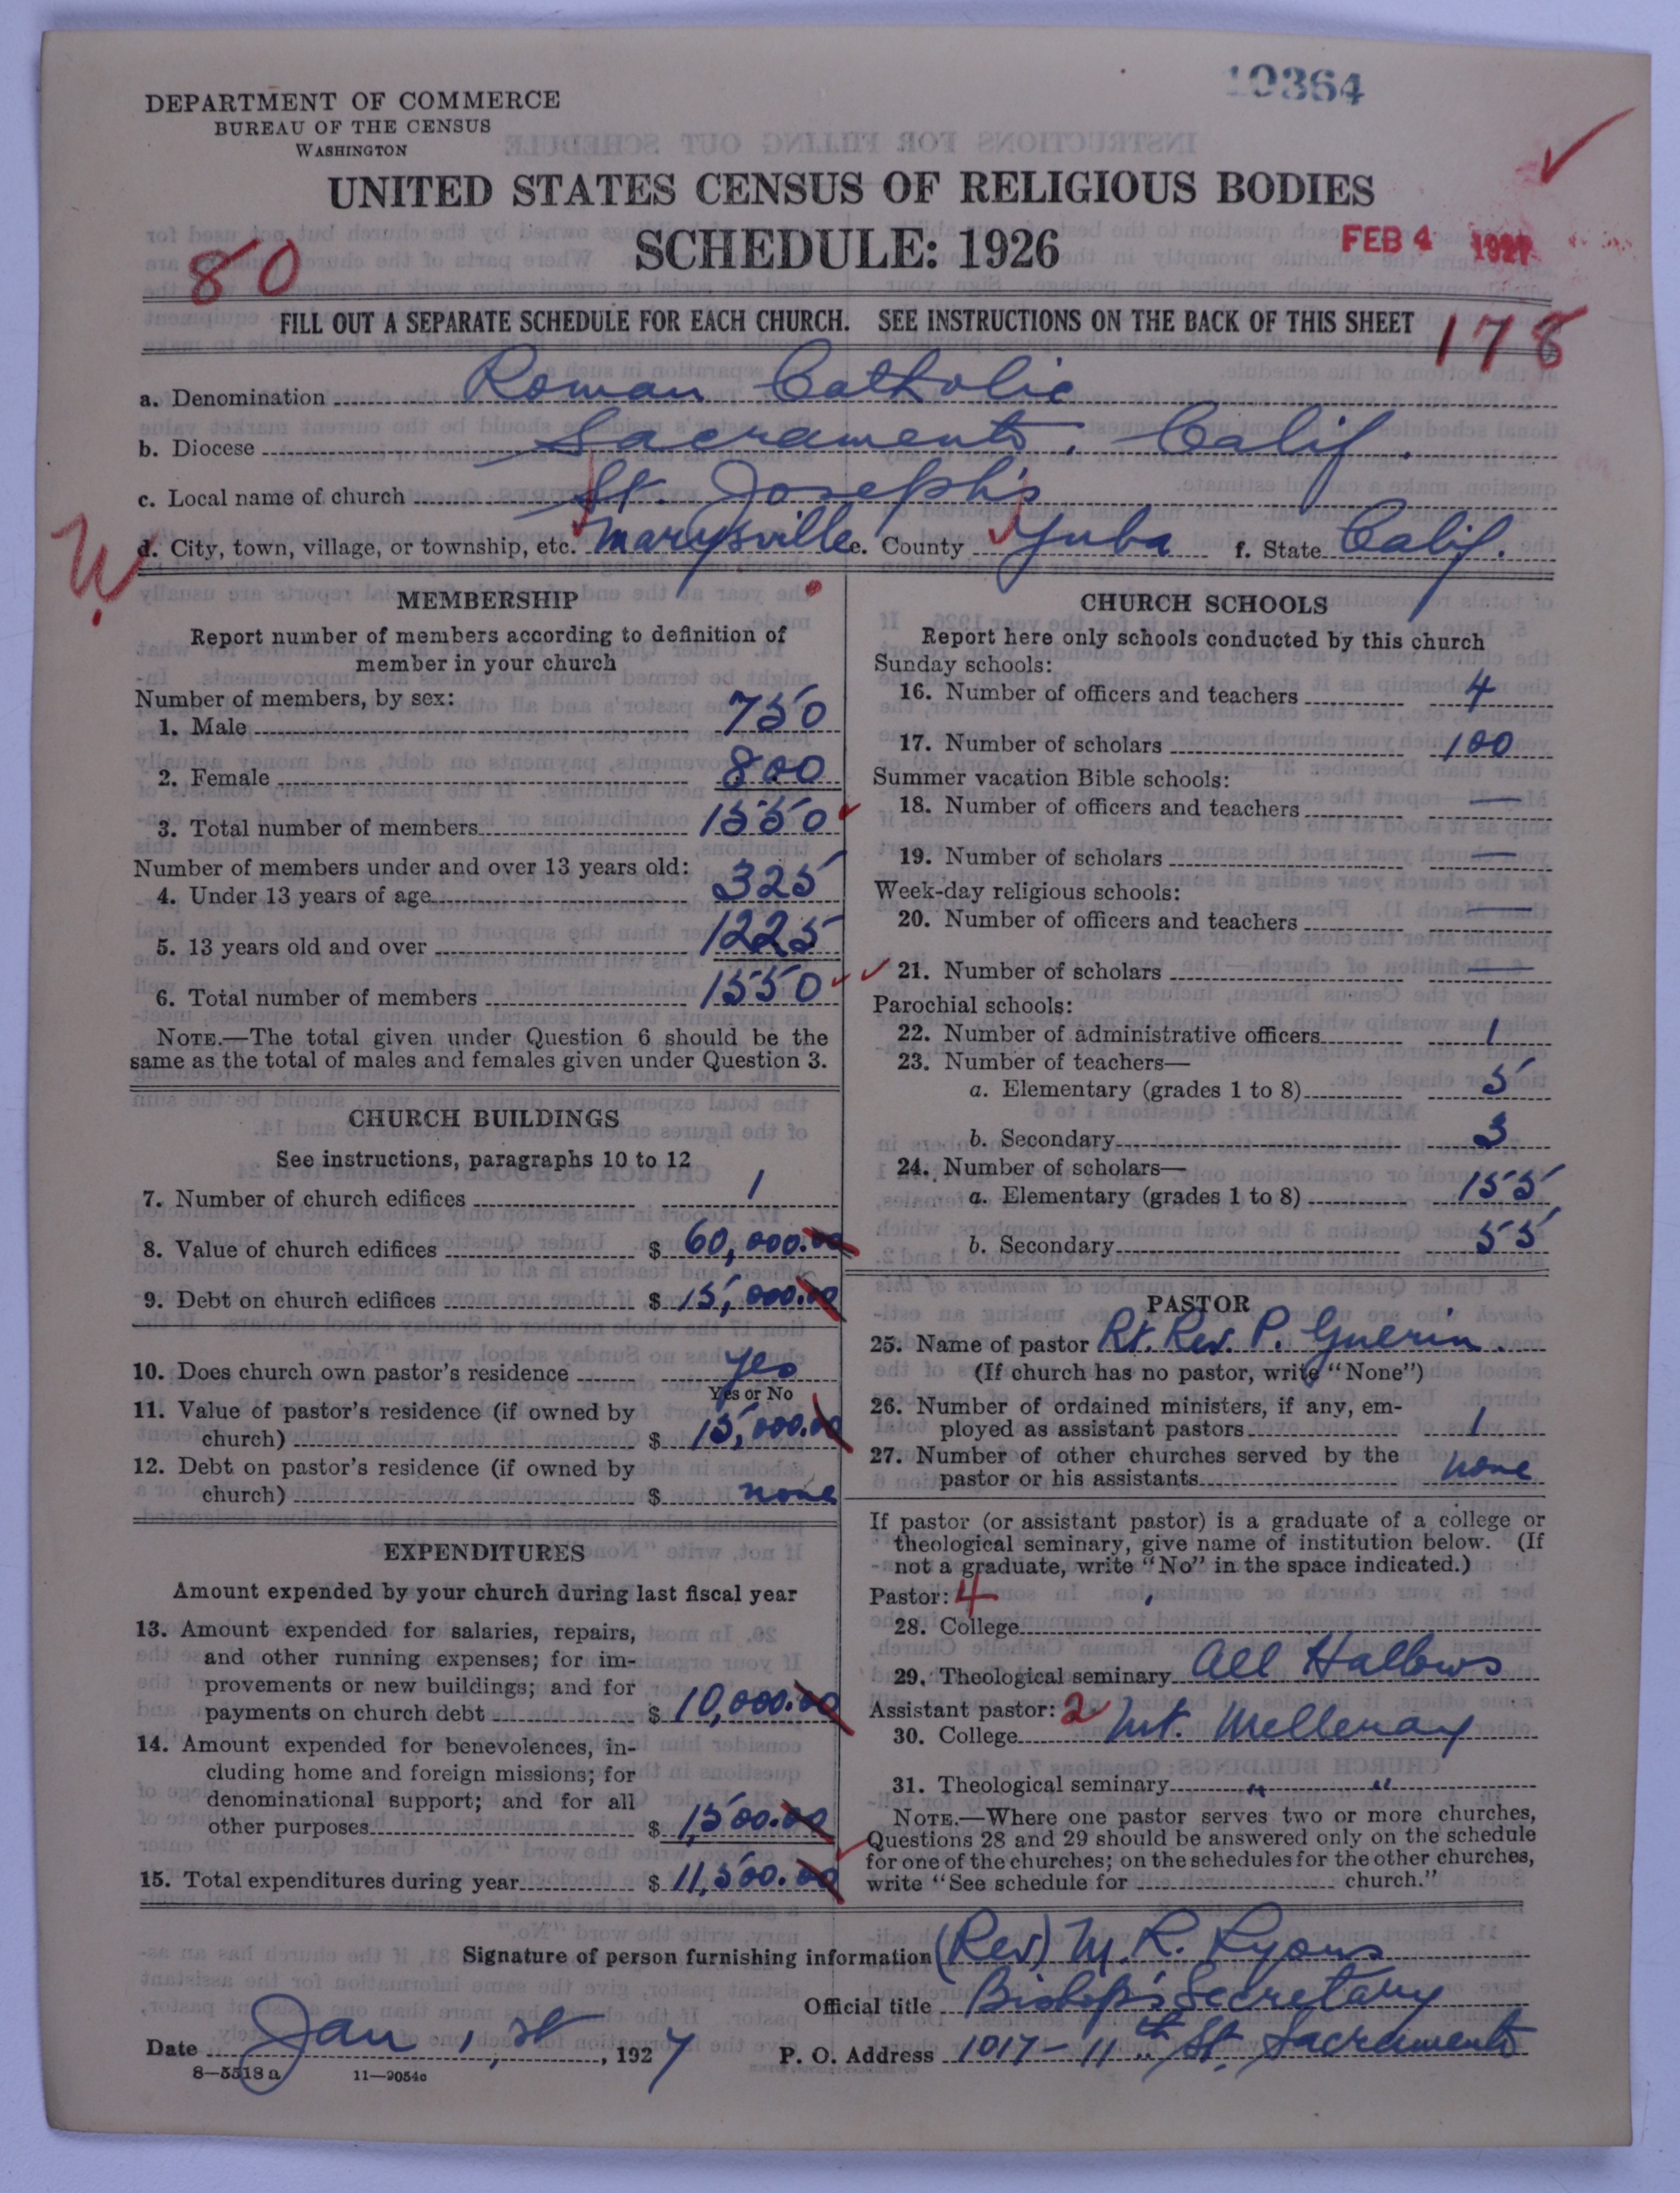 19364
DEPARTMENT OF COMMERCE
BUREAU OF THE CENSUS
WASHINGTON
UNITED STATES CENSUS OF RELIGIOUS BODIES
SCHEDULE: 1926
FEB 4 1927
80
FILL OUT A SEPARATE SCHEDULE FOR EACH CHURCH. SEE INSTRUCTIONS ON THE BACK OF THIS SHEET
178
a. Denomination Roman Catholic
b. Diocese Sacramento, Calif.
c. Local name of church St. Joseph's
W.
d. City, town, village, or township, etc. Marysville e. County Yuba f. State Calif.
MEMBERSHIP
Report number of members according to definition of
member in your church
Number of members, by sex:
1. Male 750
2. Female 800
3. Total number of members 1550
Number of members under and over 13 years old:
4. Under 13 years of age 325
5. 13 years old and over 1225
6. Total number of members 1550
NOTE.—The total given under Question 6 should be the
same as the total of males and females given under Question 3.
CHURCH BUILDINGS
See instructions, paragraphs 10 to 12
7. Number of church edifices 1
8. Value of church edifices $ 60,000.00
9. Debt on church edifices $ 15,000.00
10. Does church own pastor's residence yes
Yes or No
11. Value of pastor's residence (if owned by
church) $ 15,000.00
12. Debt on pastor's residence (if owned by
church) $ none
EXPENDITURES
Amount expended by your church during last fiscal year
13. Amount expended for salaries, repairs,
and other running expenses; for im-
provements or new buildings; and for
payments on church debt $ 10,000.00
14. Amount expended for benevolences, in-
cluding home and foreign missions; for
denominational support; and for all
other purposes $ 1,500.00
15. Total expenditures during year $ 11,500.00
CHURCH SCHOOLS
Report here only schools conducted by this church
Sunday schools:
16. Number of officers and teachers 4
17. Number of scholars 100
Summer vacation Bible schools:
18. Number of officers and teachers —
19. Number of scholars —
Week-day religious schools:
20. Number of officers and teachers —
21. Number of scholars —
Parochial schools:
22. Number of administrative officers 1
23. Number of teachers—
a. Elementary (grades 1 to 8) 5
b. Secondary 3
24. Number of scholars—
a. Elementary (grades 1 to 8) 155
b. Secondary 55
PASTOR
25. Name of pastor Rt. Rev. P. Guerin.
(If church has no pastor, write "None")
26. Number of ordained ministers, if any, em-
ployed as assistant pastors 1
27. Number of other churches served by the
pastor or his assistants none
If pastor (or assistant pastor) is a graduate of a college or
theological seminary, give name of institution below. (If
not a graduate, write "No" in the space indicated.)
Pastor: 4
28. College
29. Theological seminary All Hallows
Assistant pastor: 2
30. College Mt. Melleray
31. Theological seminary " "
NOTE.—Where one pastor serves two or more churches,
Questions 28 and 29 should be answered only on the schedule
for one of the churches; on the schedules for the other churches,
write "See schedule for church."
Signature of person furnishing information (Rev) M. R. Ryons
Official title Bishop's Secretary
Date Jan 1, st, 1927 P. O. Address 1017-11th St. Sacramento
8—5518a 11—9054c